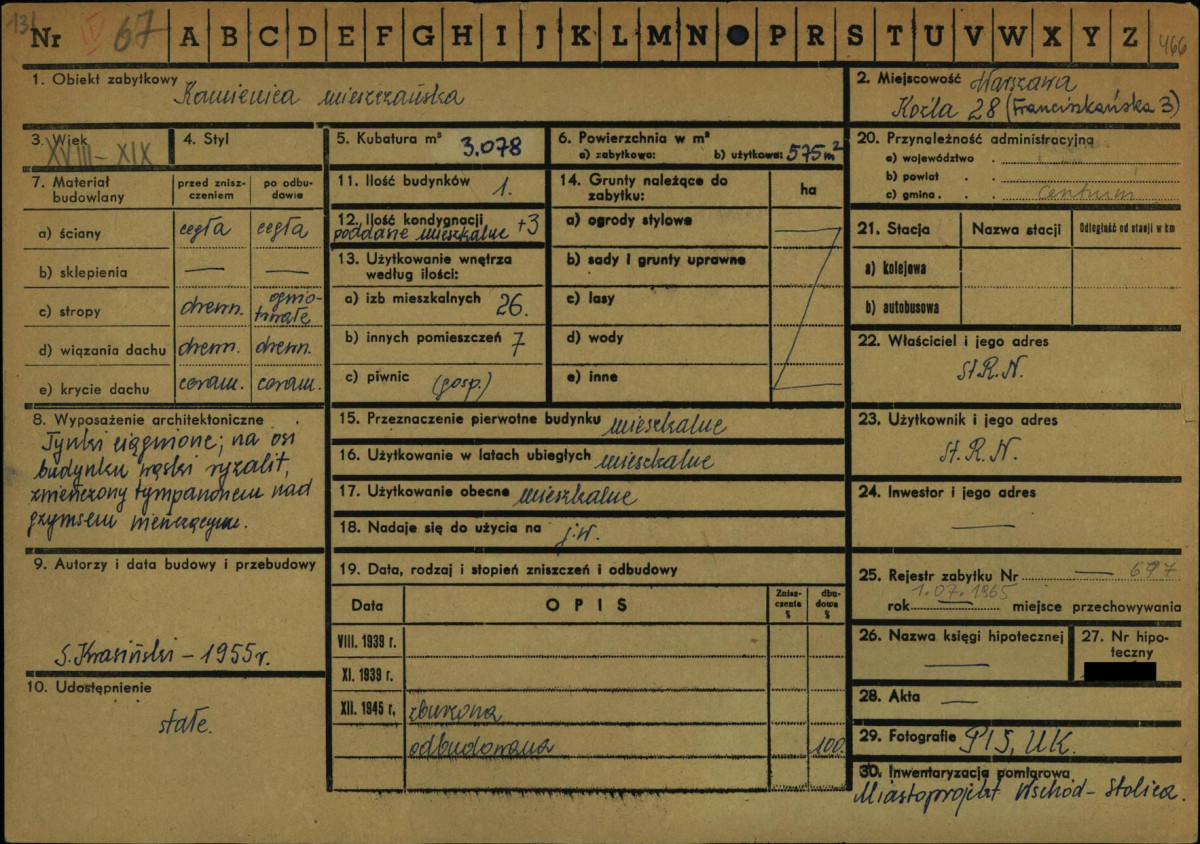 131
Nr IV 67 A B C D E F G H I J K L M N P R S T U V W X Y Z 466
1. Obiekt zabytkowy Kamienica mieszczańska
2. Miejscowość Warszawa
Koźla 28 (Franciszkańska 3)
3. Wiek XVIII-XIX
4. Styl
5. Kubatura m³ 3.078
6. Powierzchnia w m²
a) zabytkowa: b) użytkowa: 575 m²
7. Materiał budowlany
przed zniszczeniem
po odbudowie
a) ściany cegła cegła
b) sklepienia — —
c) stropy drewn. ognio-
trwałe
d) wiązania dachu drewn. drewn.
e) krycie dachu ceram. ceram.
8. Wyposażenie architektoniczne
Tynki ciągnione; na osi
budynku wąski ryzalit,
zwieńczony tympanonem nad
gzymsem wieńczącym.
9. Autorzy i data budowy i przebudowy
S. Krasiński – 1955 r.
10. Udostępnienie
stałe.
11. Ilość budynków 1.
12. Ilość kondygnacji
poddasze mieszkalne +3
13. Użytkowanie wnętrza
według ilości:
a) izb mieszkalnych 26.
b) innych pomieszczeń 7
c) piwnic (gosp.)
14. Grunty należące do
zabytku:
ha
a) ogrody stylowe —
b) sady i grunty uprawne
c) lasy
d) wody
e) inne —
15. Przeznaczenie pierwotne budynku mieszkalne
16. Użytkowanie w latach ubiegłych mieszkalne
17. Użytkowanie obecne mieszkalne
18. Nadaje się do użycia na j.w.
19. Data, rodzaj i stopień zniszczeń i odbudowy
Data OPIS Znisz-
czenia
% dbu-
dowa
%
VIII. 1939 r.
XI. 1939 r.
XII. 1945 r. zburzona
odbudowana 100.
20. Przynależność administracyjna
a) województwo
b) powiat
c) gmina centrum
21. Stacja Nazwa stacji Odległość od stacji w km
a) kolejowa
b) autobusowa
22. Właściciel i jego adres
St.R.N.
23. Użytkownik i jego adres
St.R.N.
24. Inwestor i jego adres
—
25. Rejestr zabytku Nr — 697
1.07.1965
rok — miejsce przechowywania
26. Nazwa księgi hipotecznej
—
27. Nr hipo-
teczny
28. Akta —
29. Fotografie PIS, UK.
30. Inwentaryzacja pomiarowa
Miastoprojekt Wschód – Stolica.